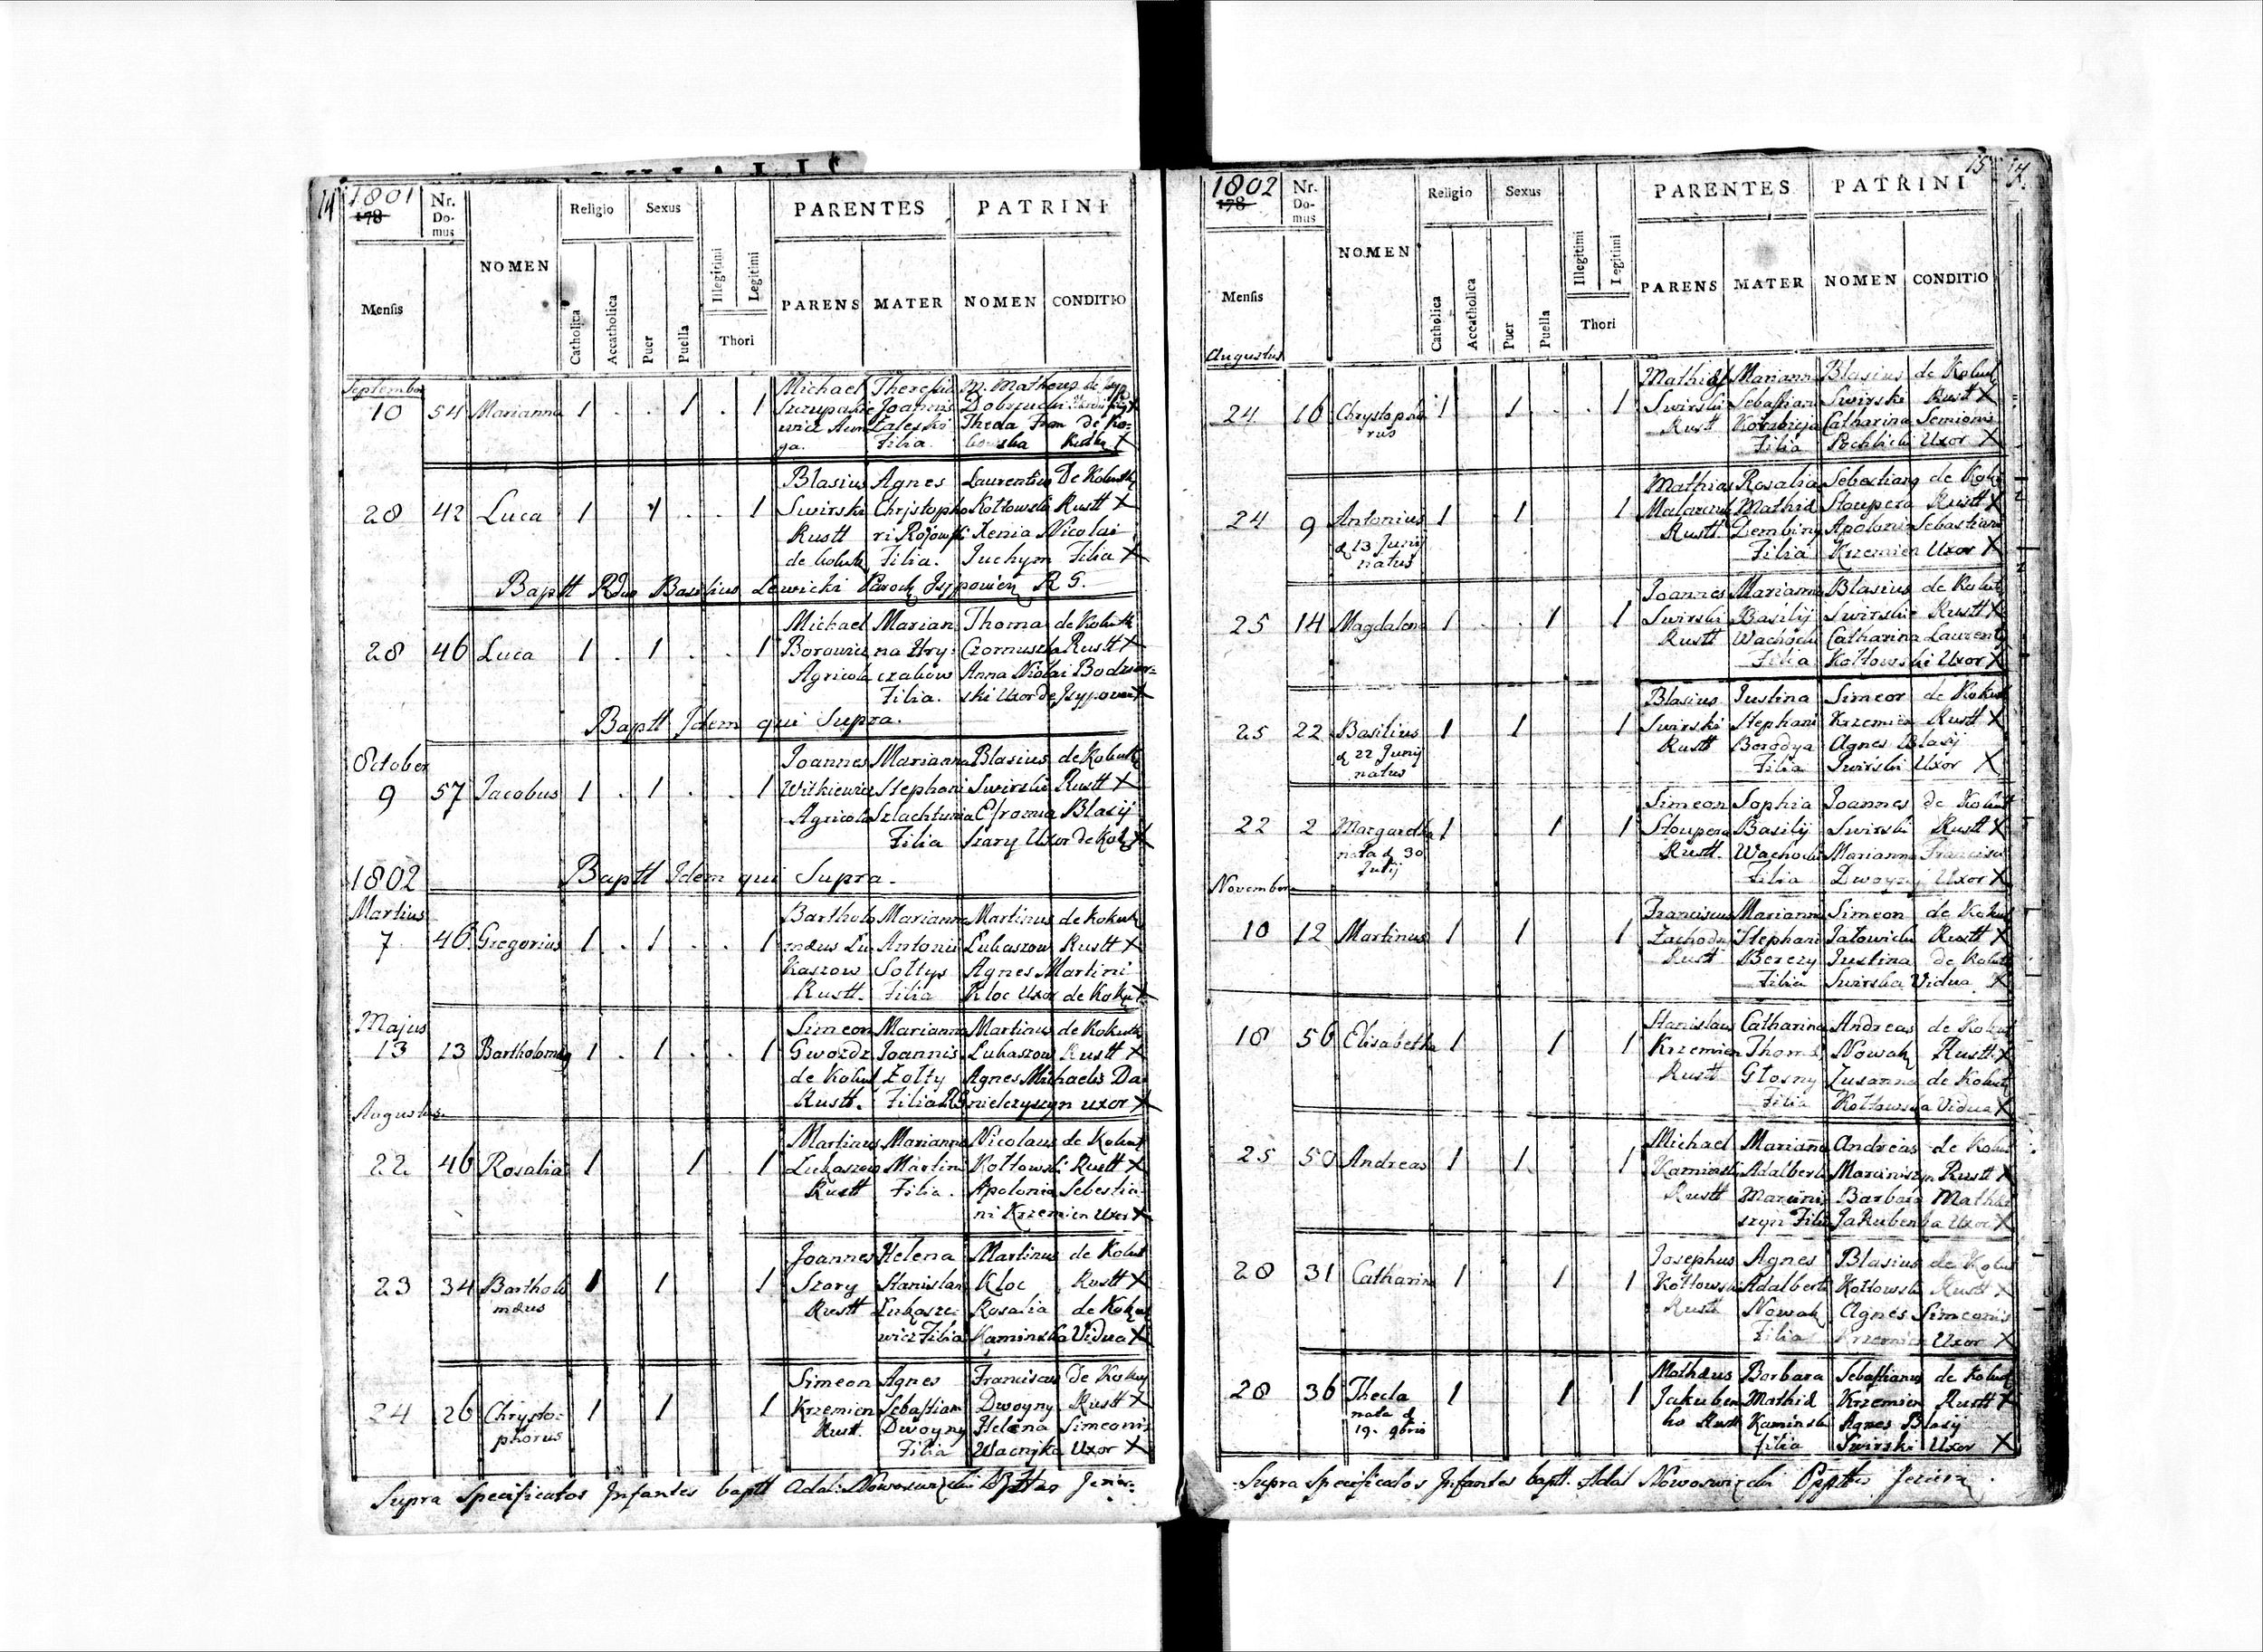 14
1801
178
Nr. Domus
NOMEN
Religio
Sexus
PARENTES
PATRINI
Mensis
Catholica
Accatholica
Puer
Puella
Illegitimi
Legitimi
Thori
PARENS
MATER
NOMEN
CONDITIO
September
10 54 Marianna 1 . . 1 . 1
Michael
Theresia
Joannis
Zaleski
Filia.
M. Matheus
Thecla
28 42 Luca 1 1 . . 1
Blasius Agnes Laurentius De Kokutk
Swirski Christopho Kotłowski Rustt X
Rustt ri Xenia Nicolai
de Kokutk Filia. Juchym Filia X
Baptt Rdus Basilius Lewicki Paroch R G.
28 46 Luca 1 . 1 . . 1
Michael Marian Thoma de Kokutk
Borowicz na Hry- Rustt X
Agricola czakow Anna Nicolai
Filia. ski Uxor de X
Baptt Idem qui Supra.
October
9 57 Jacobus 1 . 1 . . 1
Joannes Marianna Blasius de Kokutk
Witkiewicz Stephani Swirski Rustt X
Agricola Szlachtunia Efroma Blasij
Filia Szary Uxor de Kok X
Baptt Idem qui Supra.
1802
Martius
7 46 Gregorius 1 . 1 . . 1
Bartholo Marianna Martinus de Kokutk
mæus Lu Antonii Lukaszow Rustt X
kaszow Sołtys Agnes Martini
Rustt. Filia Kloc Uxor de Kokut X
Majus
13 13 Bartholomæus 1 . 1 . . 1
Simeon Marianna Martinus de Kokutk
Gwozdz Joannis Lukaszow Rustt X
de Kokut Zołty Agnes Michaelis Da
Rustt. Filia RG nielczyszyn uxor X
Augustus
22 46 Rosalia 1 1 . 1
Martinus Marianna Nicolaus de Kokut
Lukaszow Martini Kotłowski Rustt X
Rustt Filia. Apolonia Sebestia
ni Krzemien Uxor X
23 34 Bartholo 1 1 1
mæus
Joannes Helena Martinus de Kokut
Szary Stanislai Kloc Rustt X
Rustt Lukasze- Rosalia de Kokut
wicz Filia Kaminska Vidua X
24 26 Chrysto- 1 1 1
phorus
Simeon Agnes Franciscus de Kokut
Krzemien Sebastiani Dwoyny Rustt X
Rust. Dwoyny Helena Simeonis
Filia Uxor X
Supra Specificatos Infantes baptt
15
1802
178
Nr. Domus
NOMEN
Religio
Sexus
PARENTES
PATRINI
Mensis
Catholica
Accatholica
Puer
Puella
Illegitimi
Legitimi
Thori
PARENS
MATER
NOMEN
CONDITIO
Augustus
24 16 Chrystopho 1 . 1 . . 1
rus
Mathias Mariann Blasius de Kokut
Swirski Sebastiani Swirski Rustt X
Rustt Catharina Semionis
Filia Uxor X
24 9 Antonius 1 1 1
d 13 Junij
natus
Mathias Rosalia Sebestiang de Kokt
Mathiæ Stoupera Rustt X
Rustt Apolonia Sebastiani
Filia Krzemien Uxor X
25 14 Magdalena 1 . . 1 1
Joannes Marianna Blasius de Kokut
Swirski Basilij Swirski Rustt X
Rustt Catharina Laurenty
Filia Kotłowski Uxor X
25 22 Basilius 1 1 1
d 22 Junij
natus
Blasius Justina Simeon de Kokut
Swirski Stephani Krzemien Rustt X
Rustt Agnes Blasij
Filia Swirski Uxor X
22 2 Margaretha 1 1 1
nata d 30
Julij
Simeon Sophia Joannes de Kokut
Stoupera Basilij Swirski Rustt X
Rustt. Marianna Francisci
Filia Dwoyny Uxor X
November
10 12 Martinus 1 1 1
Franciscus Mariann Simeon de Kokut
Stephani Rustt X
Rustt Berezy Justina de Kokut
Filia Swirska Vidua X
18 56 Elisabetha 1 1 1
Stanislaus Catharina Andreas de Kokut
Krzemien Thomæ Nowak Rustt X
Rustt Głosny Zusanna de Kokut
Filia Kotłowska Vidua X
25 50 Andreas 1 1 1
Michael Marianna Andreas de Kokut
Kaminski Adalberti Marciniszyn Rustt X
Rustt Marcini Barbara Mathæi
szyn Filia Jakubenka Uxor X
28 31 Catharina 1 1 1
Josephus Agnes Blasius de Kokut
Kotłowski Adalberti Kotłowski Rustt X
Rustt Nowak Agnes Simeonis
Filia Krzemien Uxor X
28 36 Thecla 1 1 1
nata d
19. 9bris
Mathæus Barbara Sebastianus de Kokut
Jakuben Mathiæ Krzemien Rustt X
ko Rustt Kaminski Agnes Blasij
filia Swirski Uxor X
Supra Specificatos Infantes baptt. Adal